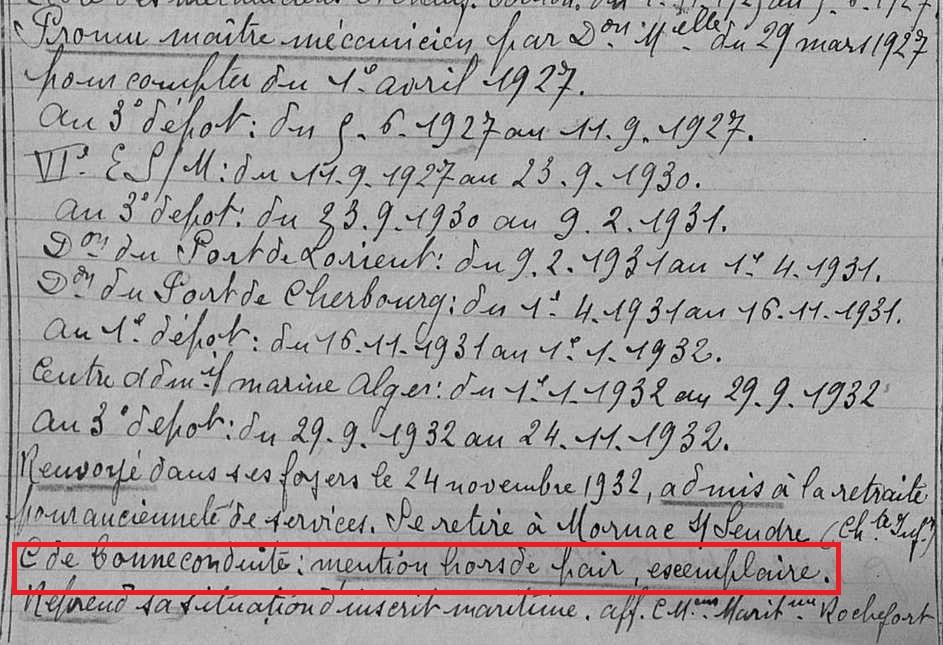 Promu maître mécanicien par Don Melle du 29 mars 1927
pour compter du 1e avril 1927.
au 3e dépot : du 9. 6. 1927 au 11. 9. 1927.
VIe. E S/M : du 11. 9. 1927 au 23. 9. 1930.
au 3e depot : du 23. 9. 1930 au 9. 2. 1931.
Don du Port de Lorient : du 9. 2. 1931 au 1e 4. 1931.
Don du Port de Cherbourg : du 1e 4. 1931 au 16. 11. 1931.
au 1e dépot : du 16. 11. 1931 au 1e 1. 1932.
Centre admif marine Alger : du 1e 1. 1932 au 29. 9. 1932
au 3e depot : du 29. 9. 1932 au 24. 11. 1932.
Renvoyé dans ses foyers le 24 novembre 1932, admis à la retraite
pour ancienneté de services. Se retire à Mornac S/ Seudre (Chte Infre)
C de bonne conduite : mention hors de pair, exemplaire.
Reprend sa situation d'inscrit maritime. aff. C Marit Rochefort